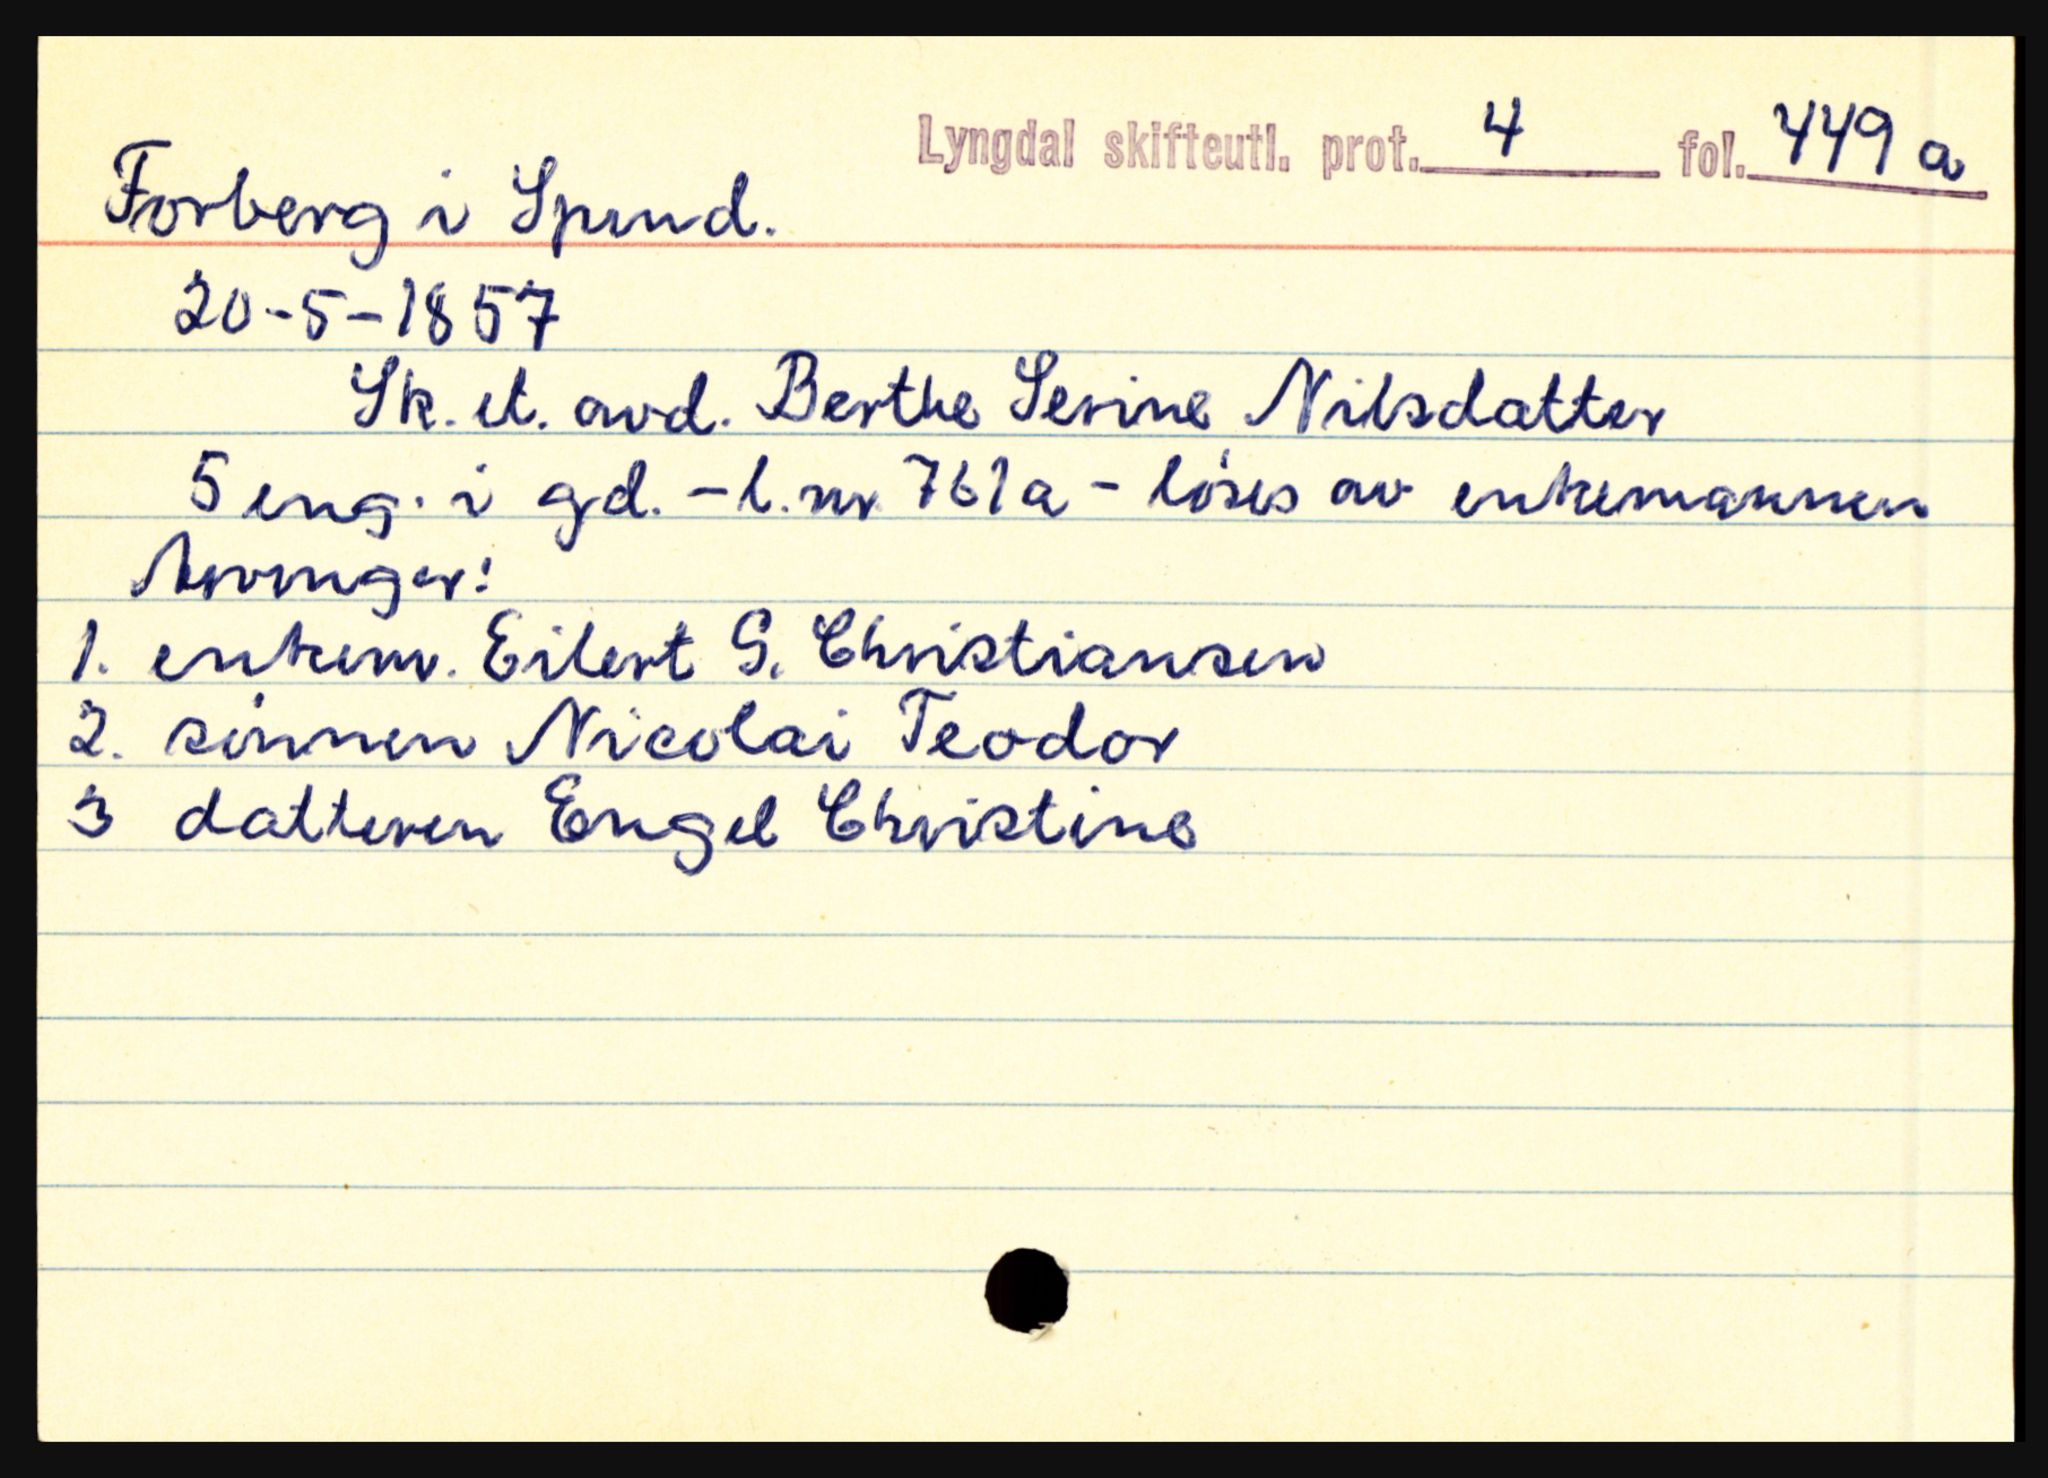 Lyngdal skifteutl. prot. 4 fol. 449 a
Forberg i Spind.
20-5-1857
Sk. et. avd. Berthe Serine Nilsdatter
5 eng. i gd. - l. nr. 761a - löses av enkemannen
Arvinger:
1. enkem. Eilert G. Christiansen
2. sönnen Nicolai Teodor
3 datteren Engel Christine